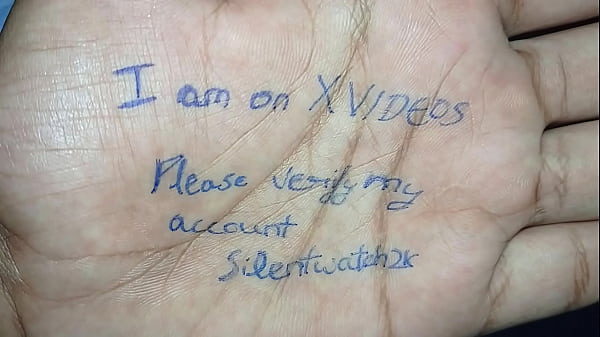 I am on XVIDEOS
Please verify my
account
Silentwatch2k